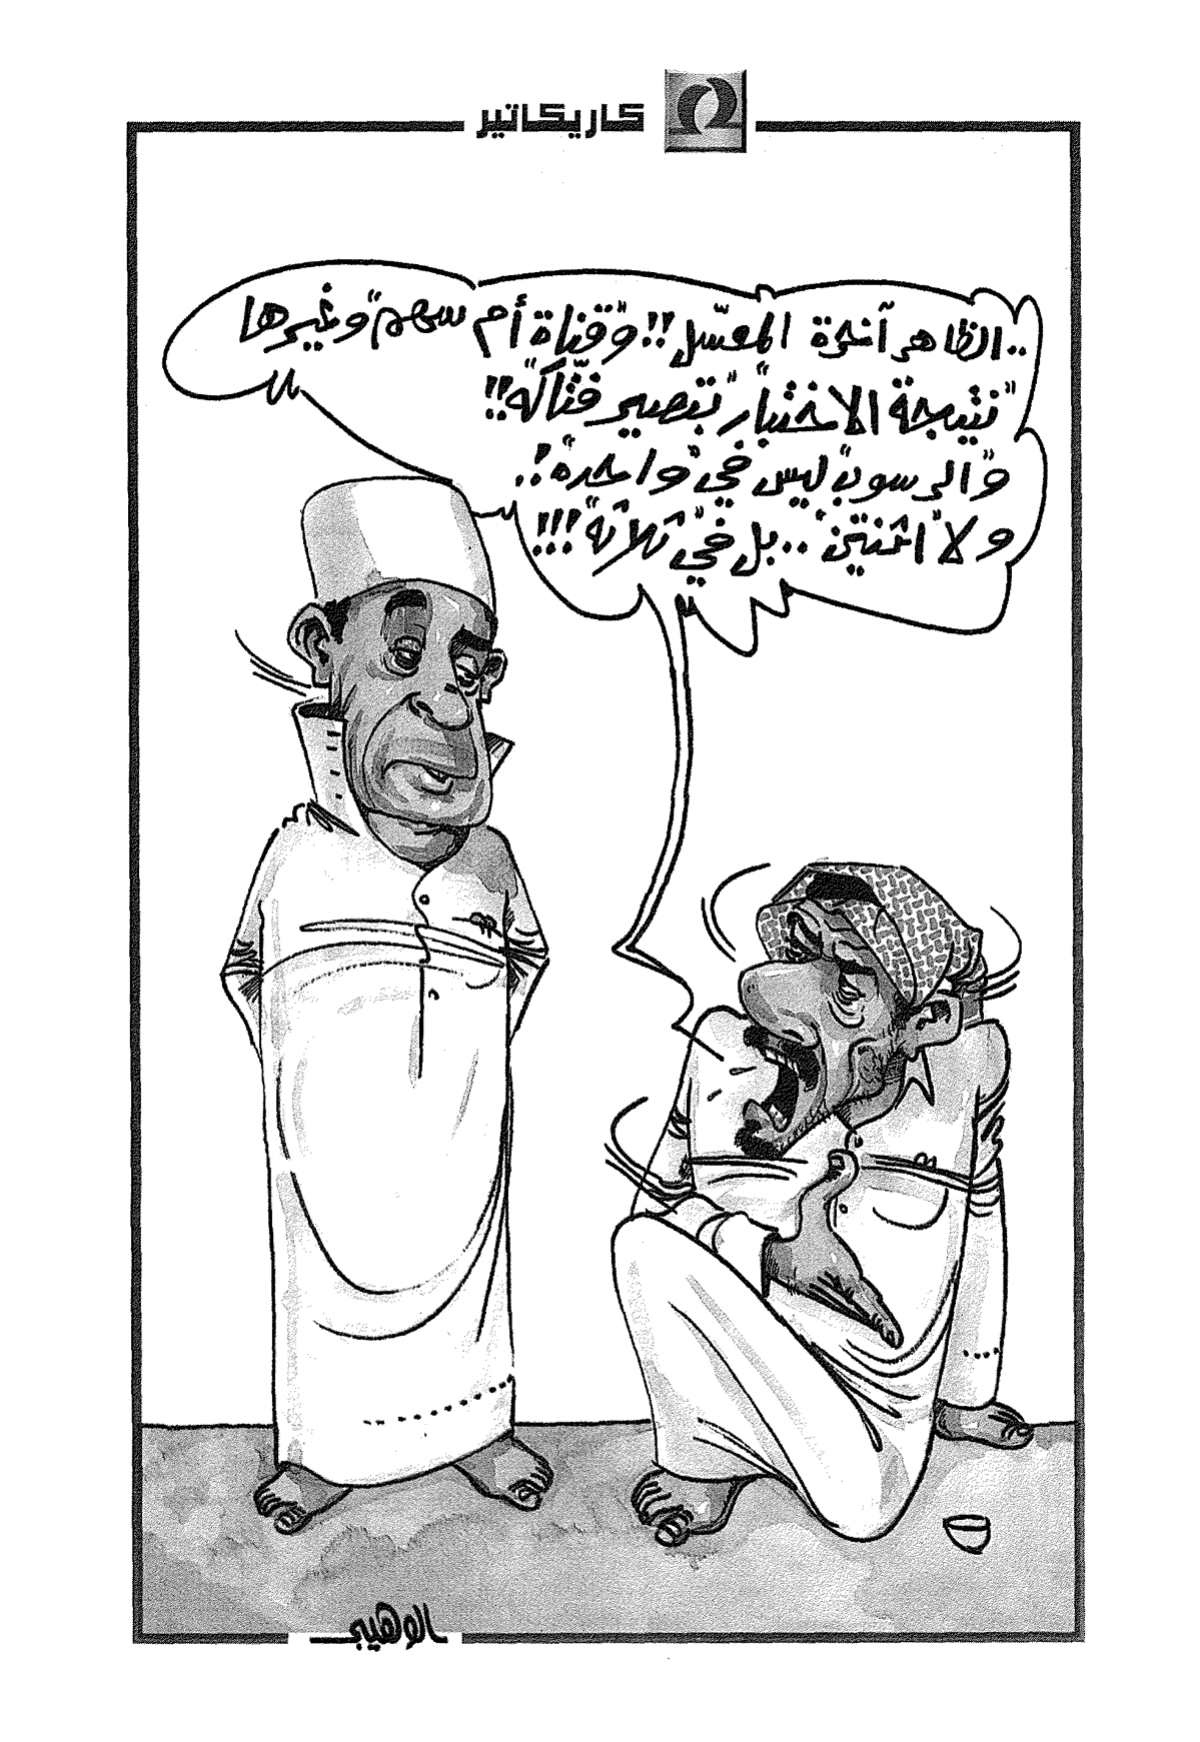 كاريكاتير
..الظاهر آخرة المعسّل!! وقناة أم سهم وغيرها
نتيجة الاختبار بتصير فتّاكه!!
والرسوب ليس في واحده!.
ولا اثنتين.. بل في ثلاثة!!!
الوهيبي